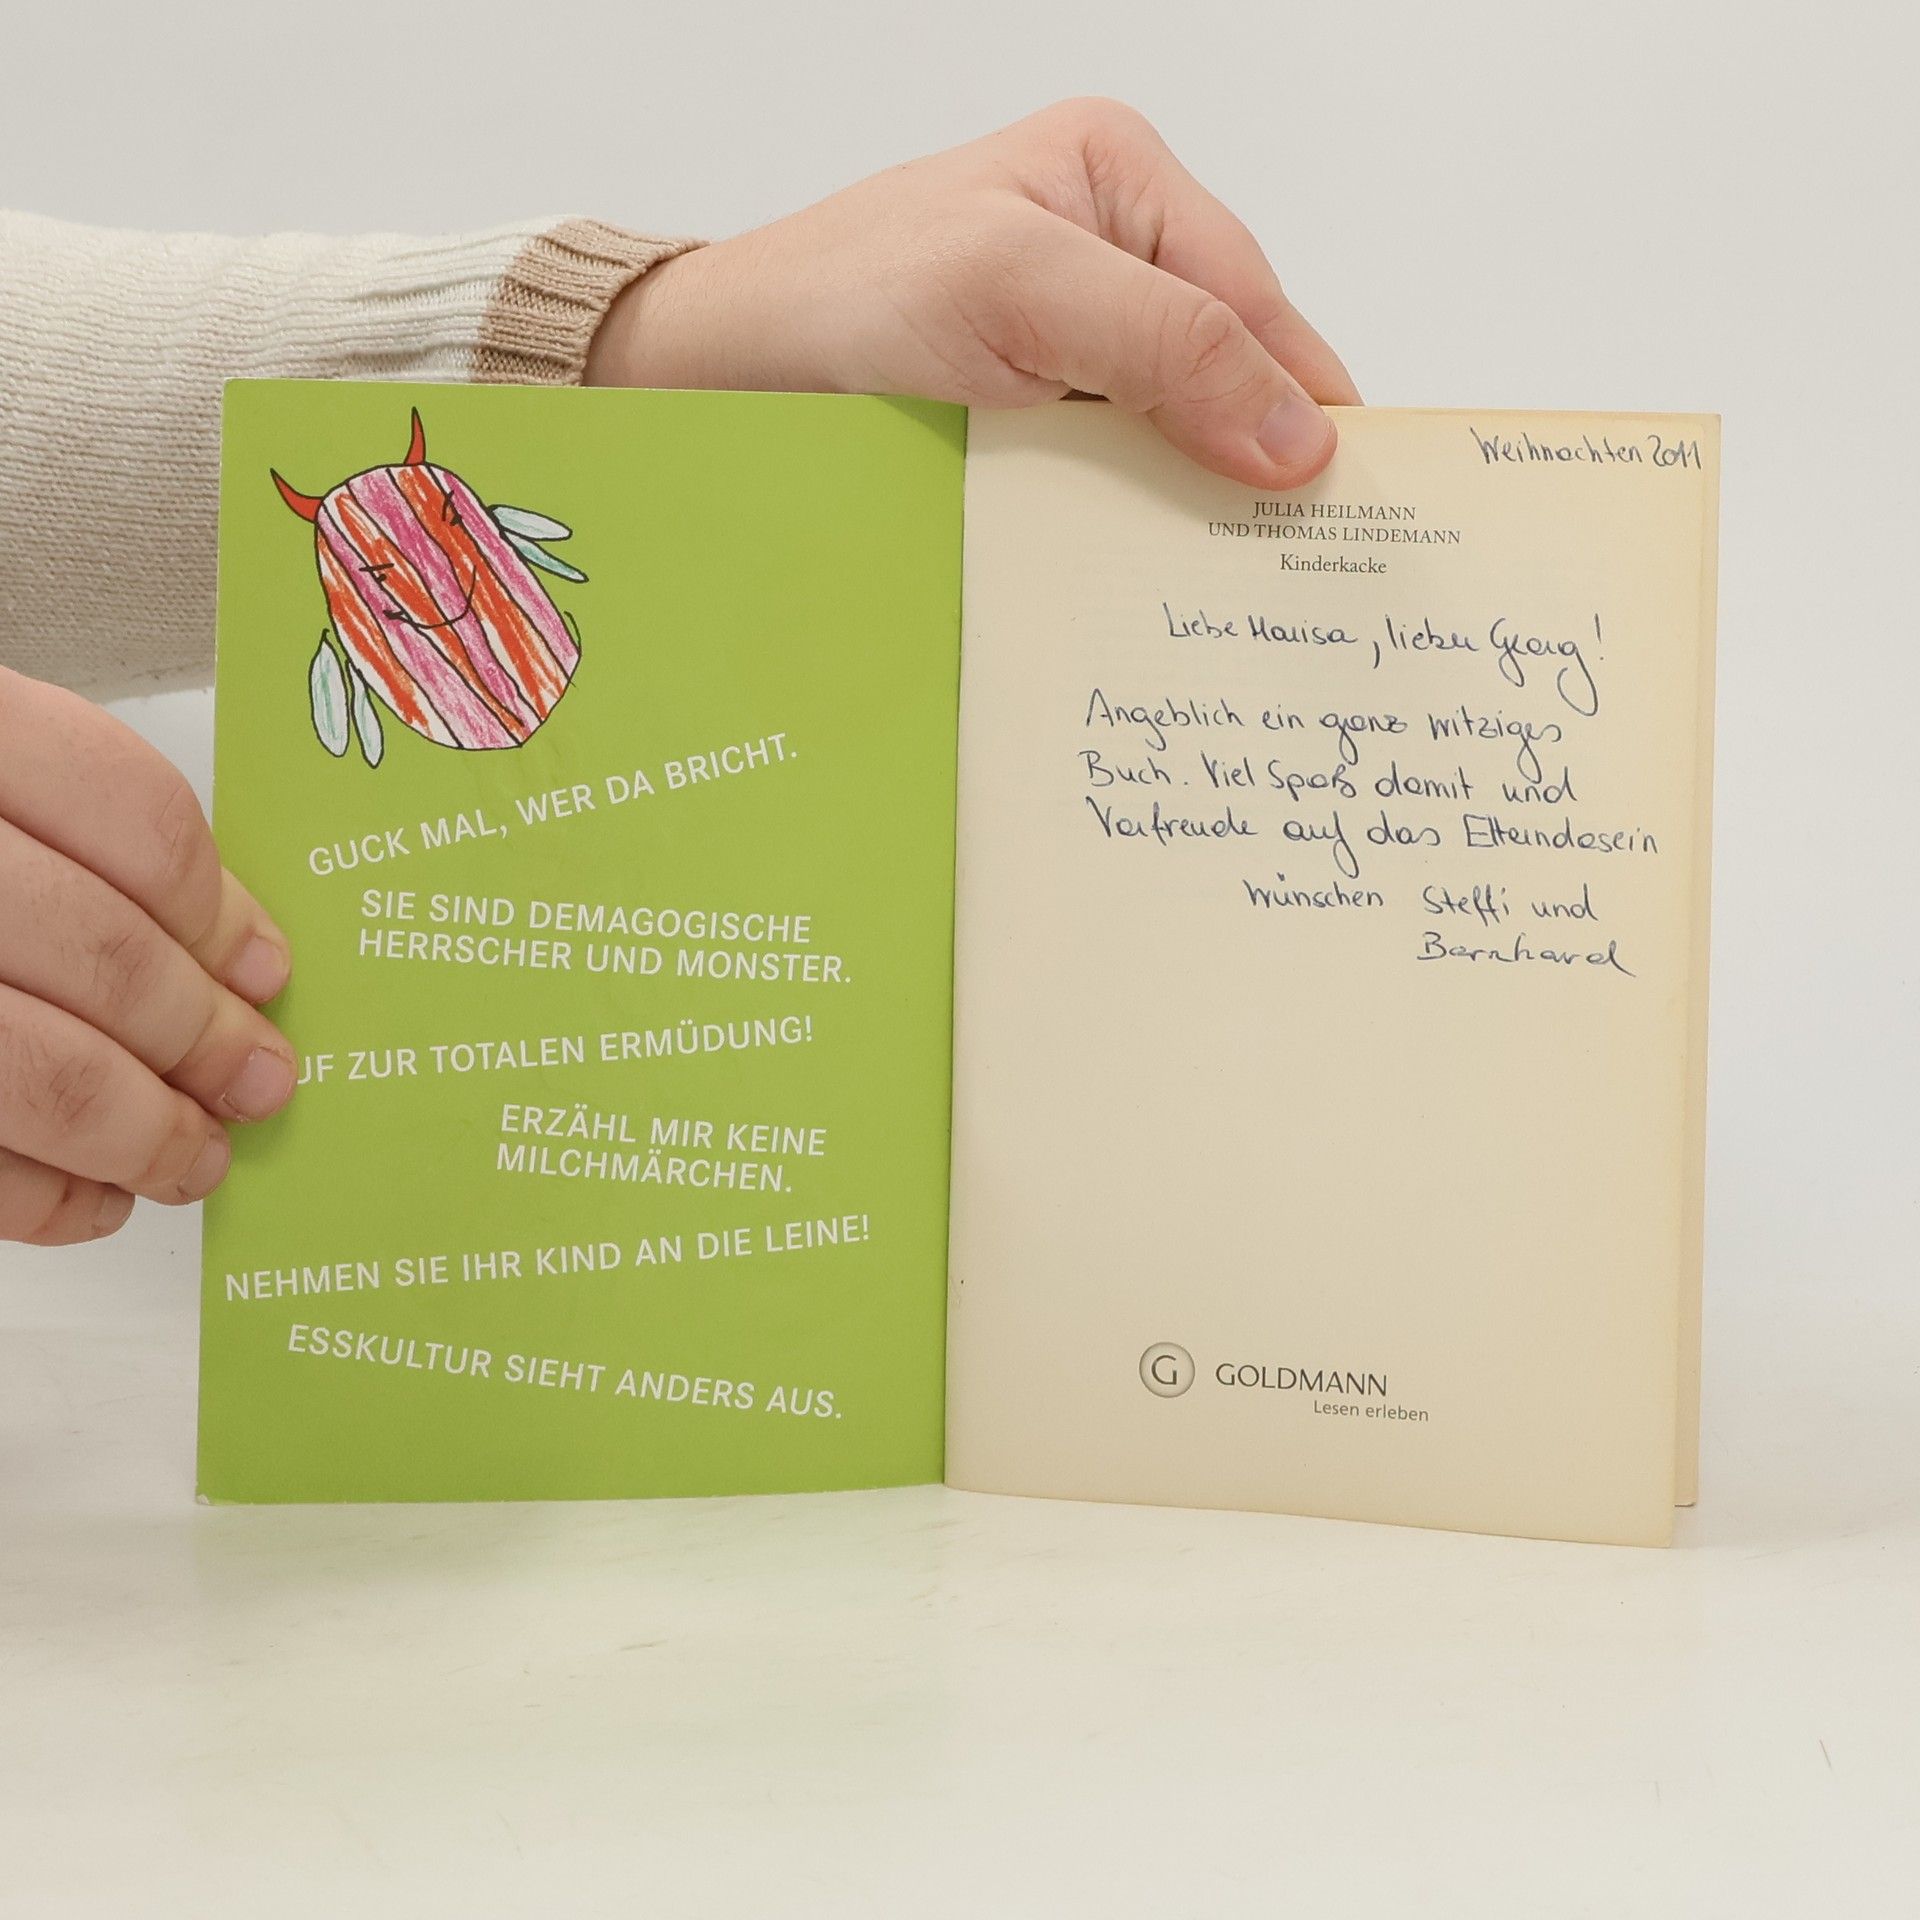 GUCK MAL, WER DA BRICHT.
SIE SIND DEMAGOGISCHE
HERRSCHER UND MONSTER.
UF ZUR TOTALEN ERMÜDUNG!
ERZÄHL MIR KEINE
MILCHMÄRCHEN.
NEHMEN SIE IHR KIND AN DIE LEINE!
ESSKULTUR SIEHT ANDERS AUS.
Weihnachten 2011
JULIA HEILMANN
UND THOMAS LINDEMANN
Kinderkacke
Liebe Marisa, lieber Georg!
Angeblich ein ganz witziges
Buch. Viel Spaß damit und
Vorfreude auf das Elterndasein
wünschen Steffi und
Bernhard
G GOLDMANN
Lesen erleben